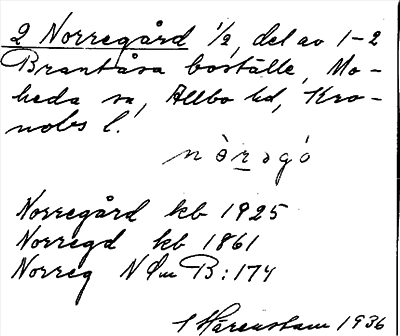 2 Norregård 1/2, del av 1-2
Brantåsa boställe, Mo-
heda sn, Allbo hd, Kro-
nobs l.
nòrəgó
Norregård kb 1925
Norregd kb 1861
Norreg NSm B:174
Härenstam 1936